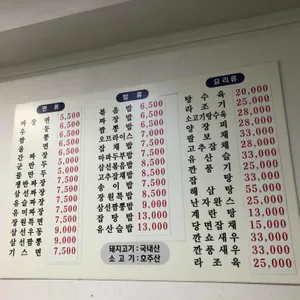 면 류
짜 장 면 5,500
우 동 6,500
짬 뽕 6,500
울 면 6,500
간 짜 장 6,500
군 만 두 5,500
물 만 두 5,500
쟁반짜장 7,500
삼선짜장 7,500
유슬짜장 7,500
유미짜장 7,500
삼선우동 7,500
삼선짬뽕 9,000
삼선울면 9,000
기 스 면 7,500
밥 류
볶 음 밥 6,500
짜 장 밥 6,500
짬 뽕 밥 6,500
오므라이스 7,500
잡 채 밥 7,500
마파두부밥 7,500
삼선볶음밥 7,500
고추잡채밥 8,500
송 이 밥 7,500
장원특밥 8,500
삼선짬뽕밥 9,000
잡 탕 밥 13,000
유산슬밥 13,000
요 리 류
탕 수 육 20,000
라 조 기 25,000
소고기탕수육 25,000
양 장 피 28,000
고추잡채 28,000
유 산 슬 33,000
깐 풍 기 25,000
잡 탕 33,000
해 삼 탕 55,000
난자완스 25,000
계란탕 23,000
당면잡채 25,000
깐쇼새우 33,000
깐풍새우 33,000
라 조 육 25,000
돼지고기 : 국내산
소 고 기 : 호주산